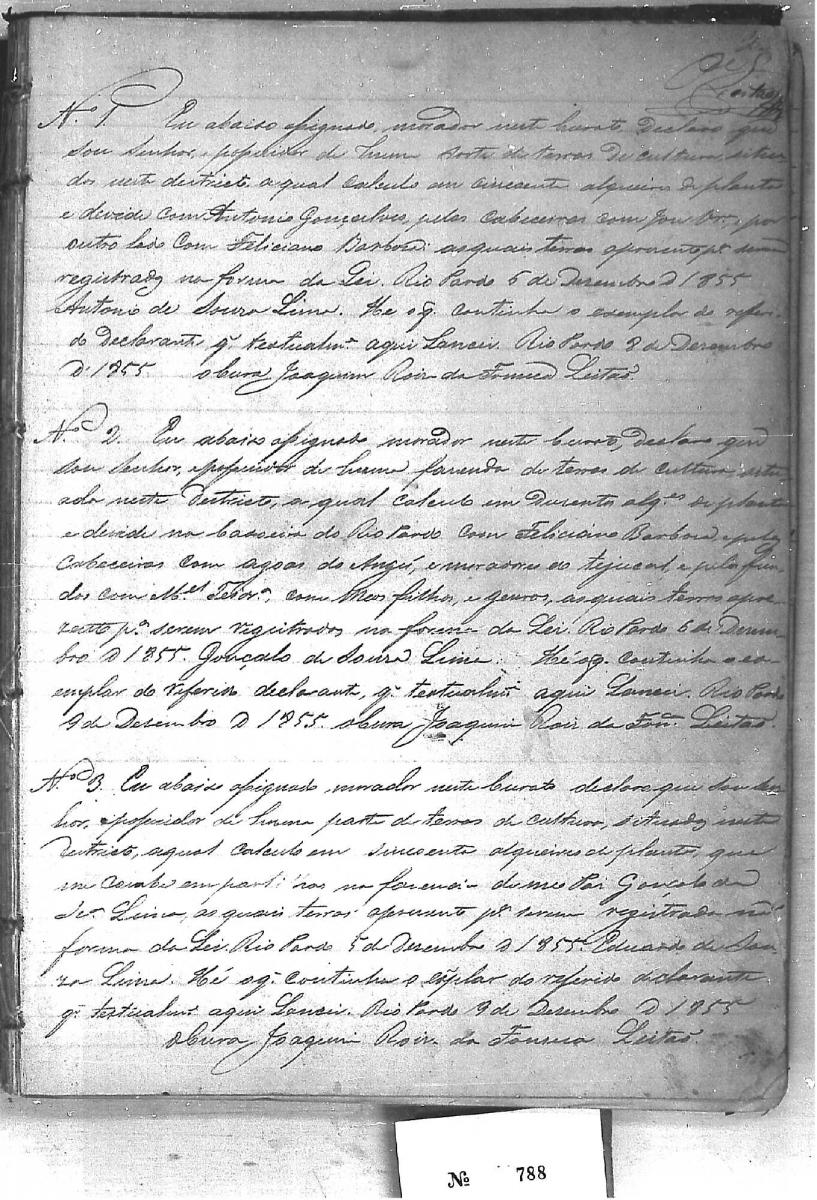 Leitaõ
Nº 1. Eu abaixo assignado, morador neste Curato, declaro que
sou Senhor, e possuidor de huma sorte de terras de cultura, situa-
das neste districto, a qual calculo em cincoenta alqueires de planta
e devide com Antonio Gonçalves, pelas cabeceiras com e por
outro lado com Feliciano Barbosa: as quais terras apresento pª serem
registradas na forma da Lei. Rio Pardo 6 de Desembro D 1855
Antonio de Souza Lima. He o q. continha o exemplar do referi-
do declarante q. textualmte aqui Lancei. Rio Pardo 8 de Dezembro
D 1855 o Cura Joaquim Roiz da Fonseca Leitaõ.
Nº 2. Eu abaixo assignado morador neste Curato, declaro que
sou Senhor, e possuidor de huma fazenda de terras de cultura situ-
ada neste Destricto, a qual calculo em Dusentos alqes de planta
e devide na barreira do Rio Pardo com Feliciano Barbosa e pelas
Cabeceiras com agoas do Angú, e moradores do tejucal, e pelos fun-
dos com Mel com meos filhos, e genros, as quais terras apre-
zento pª serem registradas na forma da Lei. Rio Pardo 6 de Dezem-
bro D 1855. Gonçalo de Souza Lima. Hé o q. continha o ex-
emplar do referido declarante, q. textualmte aqui Lancei. Rio Pardo
9 de Desembro D 1855. o Cura Joaquim Roiz da Fonca. Leitaõ.
Nº 3. Eu abaixo assignado, morador neste Curato declaro que sou Sen-
hor, e possuidor de huma parte de terras de cultura, situadas neste
Destricto, a qual calculo em sincoenta alqueires de planta, que
me coube em partilhas na fazenda de meo Pai Gonçalo de
Lima, as quais terras apresento pª serem registradas na
forma da Lei. Rio Pardo 5 de Dezembro D 1855. Eduardo de Sou-
za Lima. Hé o q. continha o explar do referido declarante
q. textualmte aqui Lancei. Rio Pardo 9 de Desembro D 1855
o Cura Joaquim Roiz da Fonseca Leitaõ.
Nº 788